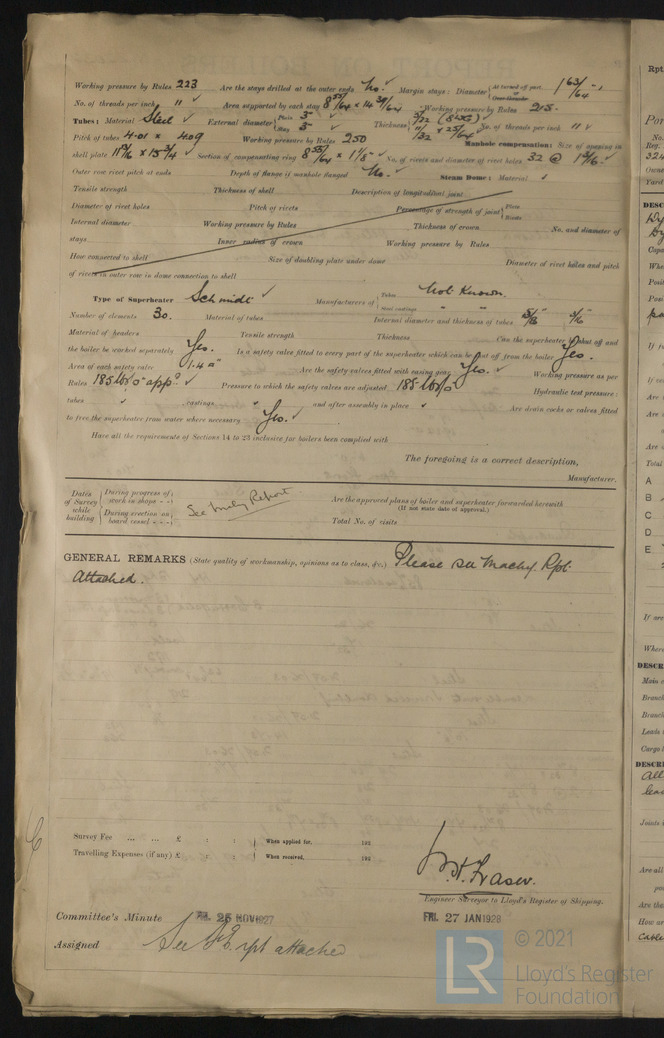 Working pressure by Rules 223 Are the stays drilled at the outer ends No. Margin stays: Diameter { At turned off part, or Over threads 1 63/64
No. of threads per inch " Area supported by each stay 8 55/64 × 14 39/64 Working pressure by Rules 215.
Tubes: Material Steel External diameter { Plain 3" Stay 3" Thickness { 5/32 (8WG) 11/32 × 25/64 No. of threads per inch "
Pitch of tubes 4.01 × 4.09 Working pressure by Rules 250 Manhole compensation: Size of opening in
shell plate × 15 3/4 Section of compensating ring 8 55/64 × 1 1/8 No. of rivets and diameter of rivet holes 32 @ 1 3/16
Outer row rivet pitch at ends Depth of flange if manhole flanged No. Steam Dome: Material
Tensile strength Thickness of shell Description of longitudinal joint
Diameter of rivet holes Pitch of rivets Percentage of strength of joint { Plate Rivets
Internal diameter Working pressure by Rules Thickness of crown No. and diameter of
stays Inner radius of crown Working pressure by Rules
How connected to shell Size of doubling plate under dome Diameter of rivet holes and pitch
of rivets in outer row in dome connection to shell
Type of Superheater Schmidt Manufacturers of { Tubes Steel castings Not Known.
Number of elements 30. Material of tubes Internal diameter and thickness of tubes 5/8
Material of headers Tensile strength Thickness Can the superheater be shut off and
the boiler be worked separately Yes. Is a safety valve fitted to every part of the superheater which can be shut off from the boiler Yes.
Area of each safety valve 1.4 □" Are the safety valves fitted with easing gear Yes. Working pressure as per
Rules 185 lbs/□" appd Pressure to which the safety valves are adjusted 185 lbs/□" Hydraulic test pressure:
tubes castings and after assembly in place Are drain cocks or valves fitted
to free the superheater from water where necessary Yes.
Have all the requirements of Sections 14 to 23 inclusive for boilers been complied with
The foregoing is a correct description,
Manufacturer.
Dates of Survey while building { During progress of work in shops - - During erection on board vessel - - - See Mchy Report Are the approved plans of boiler and superheater forwarded herewith (If not state date of approval.)
Total No. of visits
GENERAL REMARKS (State quality of workmanship, opinions as to class, &c.) Please see Machy. Rpt.
Attached.
Survey Fee ... ... £ : : When applied for, 192
Travelling Expenses (if any) £ : : When received, 192
W. Fraser.
Engineer Surveyor to Lloyd's Register of Shipping.
Committee's Minute FRI. 25 NOV 1927 FRI. 27 JAN 1928
Assigned See F.E. rpt attached
© 2021
LR Lloyd's Register
Foundation
Rpt.
Por
No.
Reg.
Owne
Yard
DESC
Capa
Whe
Posit
Posi
If
Are
Are
Are
Total
A
B
C
D
E
If are
Where
DESCR
Main c
Branch
Branch
Leads
Cargo
DESCRI
all
Joints
Are all
pos
Are the
How ar